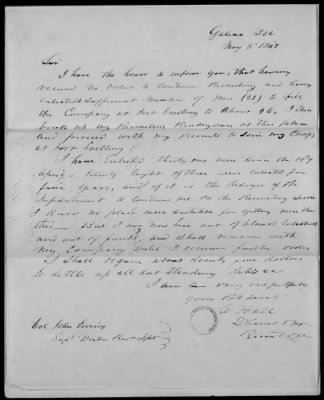 Galena Ill
May 5th 1847
Sir
I have the honor to inform you, that having
received no orders to continue Recruiting and having
enlisted sufficient number of Men (31) to fill
the Company at Fort Snelling to above 80, I shall
break up my Recruiting Rendezvous at this place
and proceed with my Recruits to join my Comp
at Fort Snelling.
I have Enlisted thirty one men since the 14th
April. Twenty eight of these were enlisted for
five years, and if it is the design of the
Department to continue me on the Recruiting Service
I know no place more suitable for getting men than
this — but I am now here out of blank Enlistments
and out of funds, and shall remain with
my Company until I receive further orders
I shall require about Seventy five dollars
to settle up all out standing debts &c
I am Sir very respectfully
your Obt Servt
S Hall
Recruit Offr
Col John Ewing
Supt Western Recr Dept